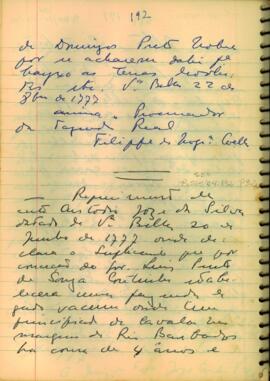 192
de Domingos Preto Nobre
por se acharem dahi pª
bayxo as terras devolu
tas etc. Vª Bella 22 de
8bro de 1777
Procurador
da Fazenda Real
Filippe de Nogª Coelho
Requerimento de
Custodio Joze da Silva
datado de Vª Bella 20 de
Junho de 1777 onde de
clara o Suplicante que por
do Snr. Luis Pinto
de Souza Coutinho estabe
lecera uma fazenda de
gado vacum onde tem
principiado de Cavalar nas
margens do Rio Barbados
ha cerca de 4 annos e